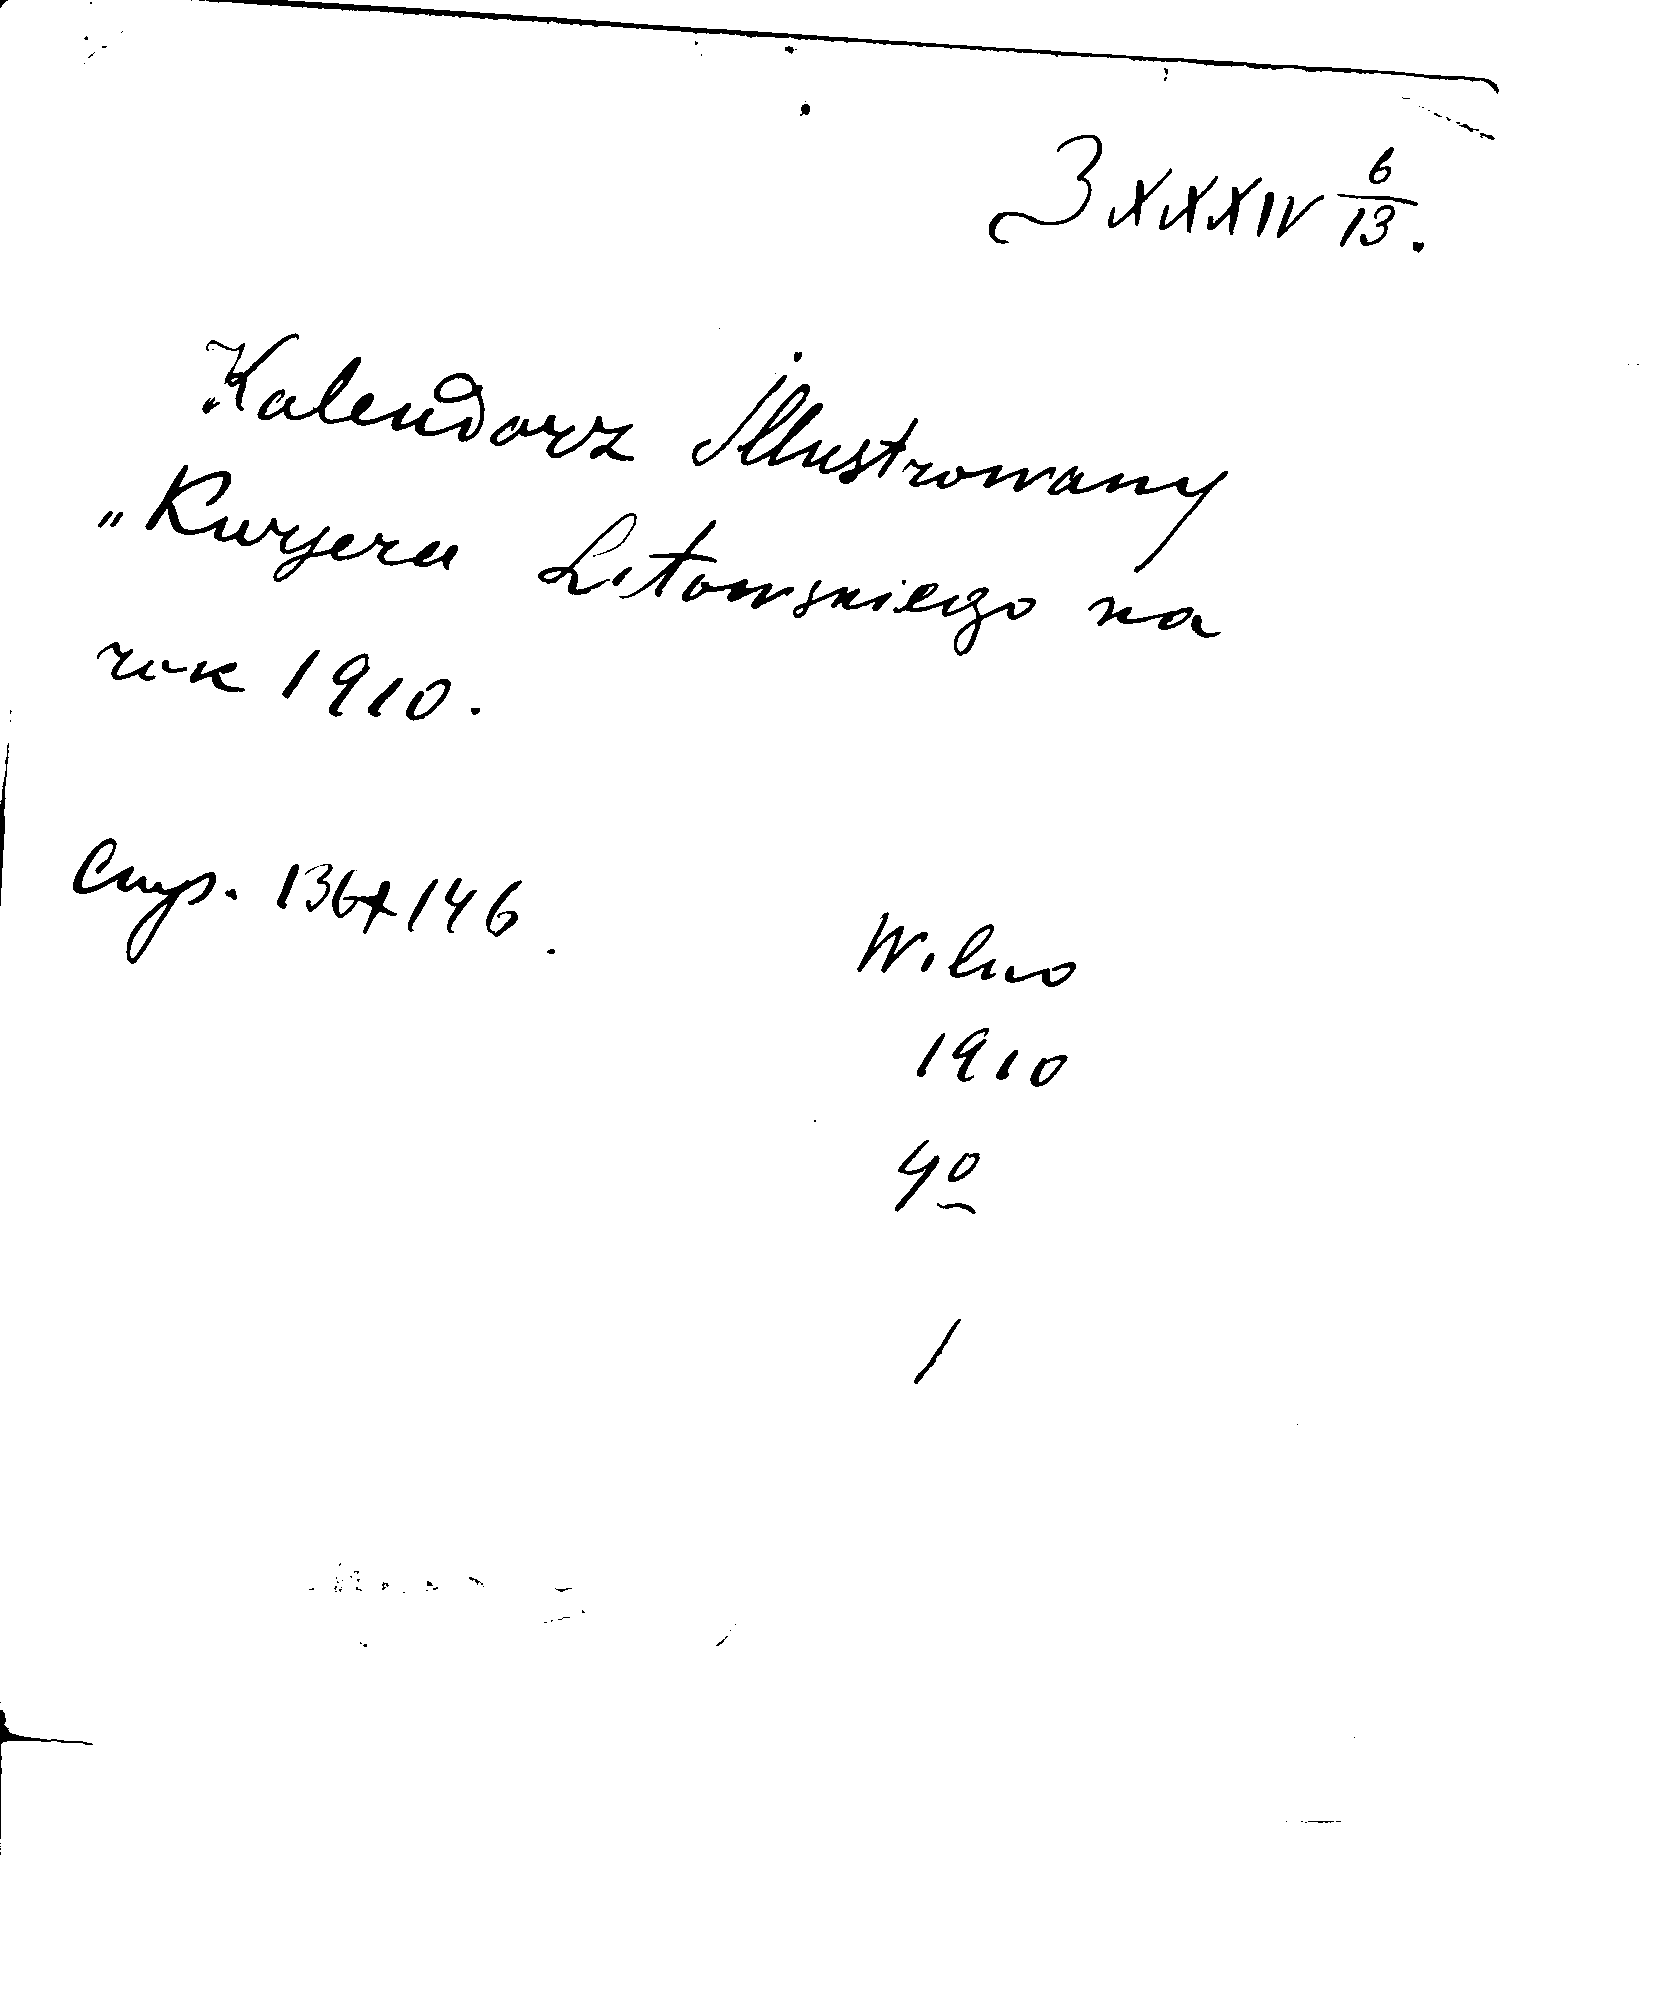 З XXXIV 6/13.
Kalendarz Illustrowany
„Kuryera Litowskiego na
rok 1910.
Стр. 136+146.
Wilno
1910
4º
1